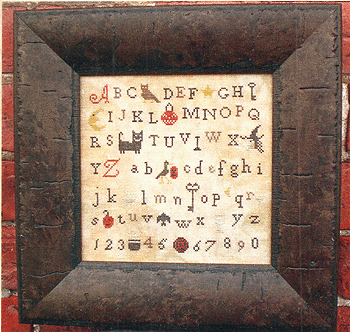 A B C D E F G H
I J K L M N O P Q
R S T U V W X
Y Z a b c d e f g h i
j k l m n o p q r
s t u v w x y z
1 2 3 4 5 6 7 8 9 0